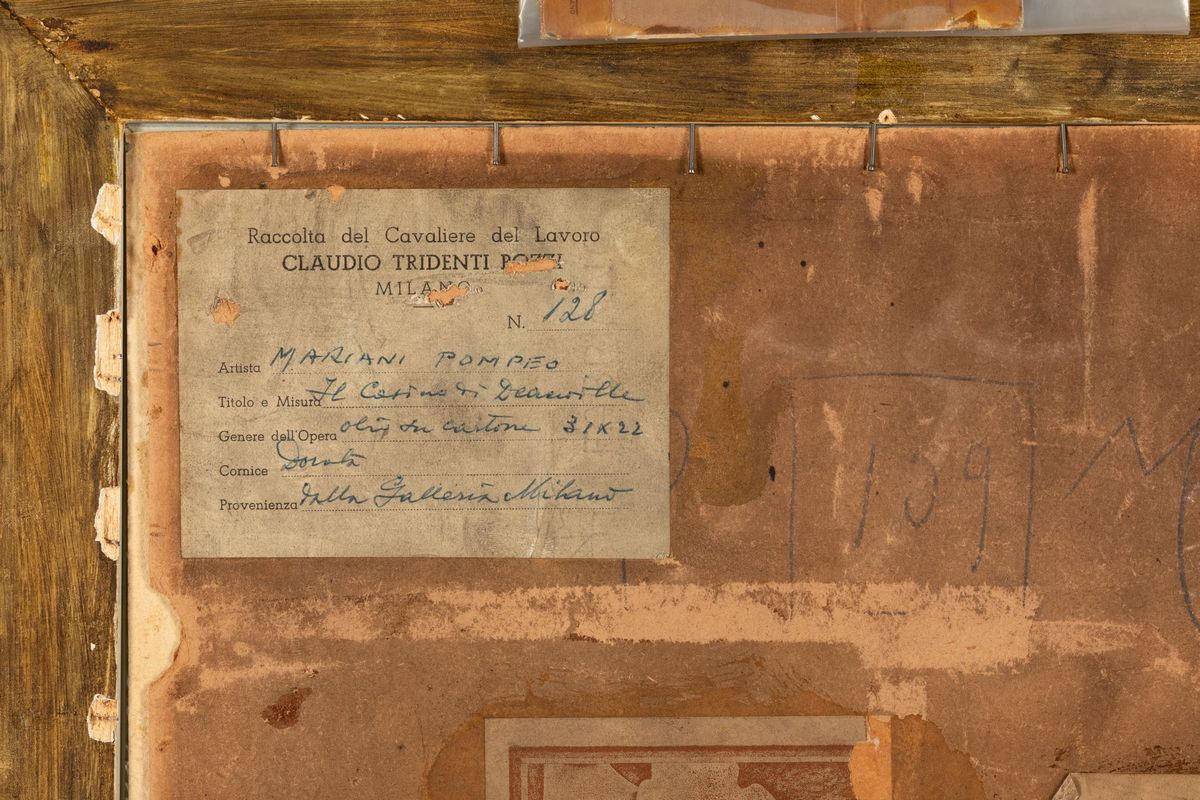 Raccolta del Cavaliere del Lavoro
CLAUDIO TRIDENTI POZZI
MILANO
N. 128
Artista MARIANI POMPEO
Titolo e Misura Il Casino di Deauville
Genere dell'Opera olio su cartone 31x22
Cornice Dorata
Provenienza dalla Galleria Milano
139
M